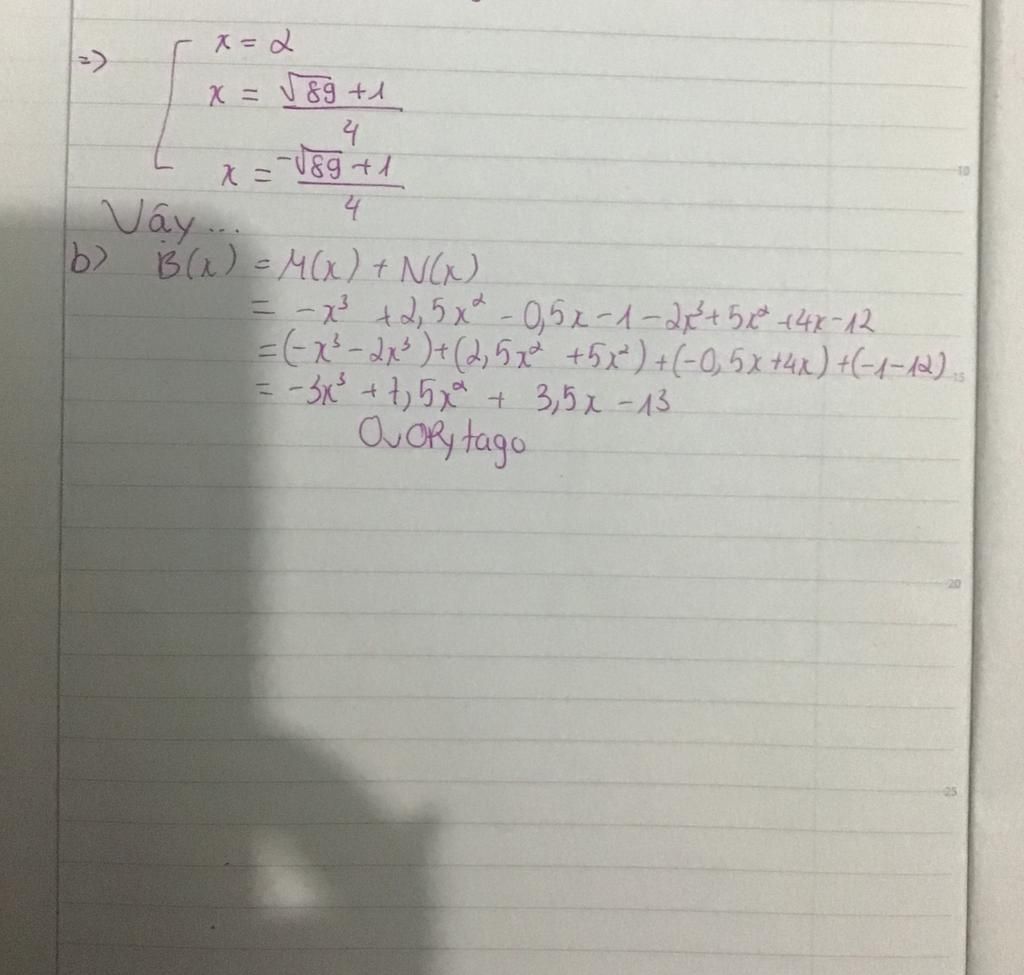 => x = 2
x = √89 + 1 / 4
x = -√89 + 1 / 4
Vậy...
b) B(x) = M(x) + N(x)
= -x³ + 2,5x² - 0,5x - 1 - 2x³ + 5x² + 4x - 12
= (-x³ - 2x³) + (2,5x² + 5x²) + (-0,5x + 4x) + (-1 - 12)
= -3x³ + 7,5x² + 3,5x - 13
10
15
20
25